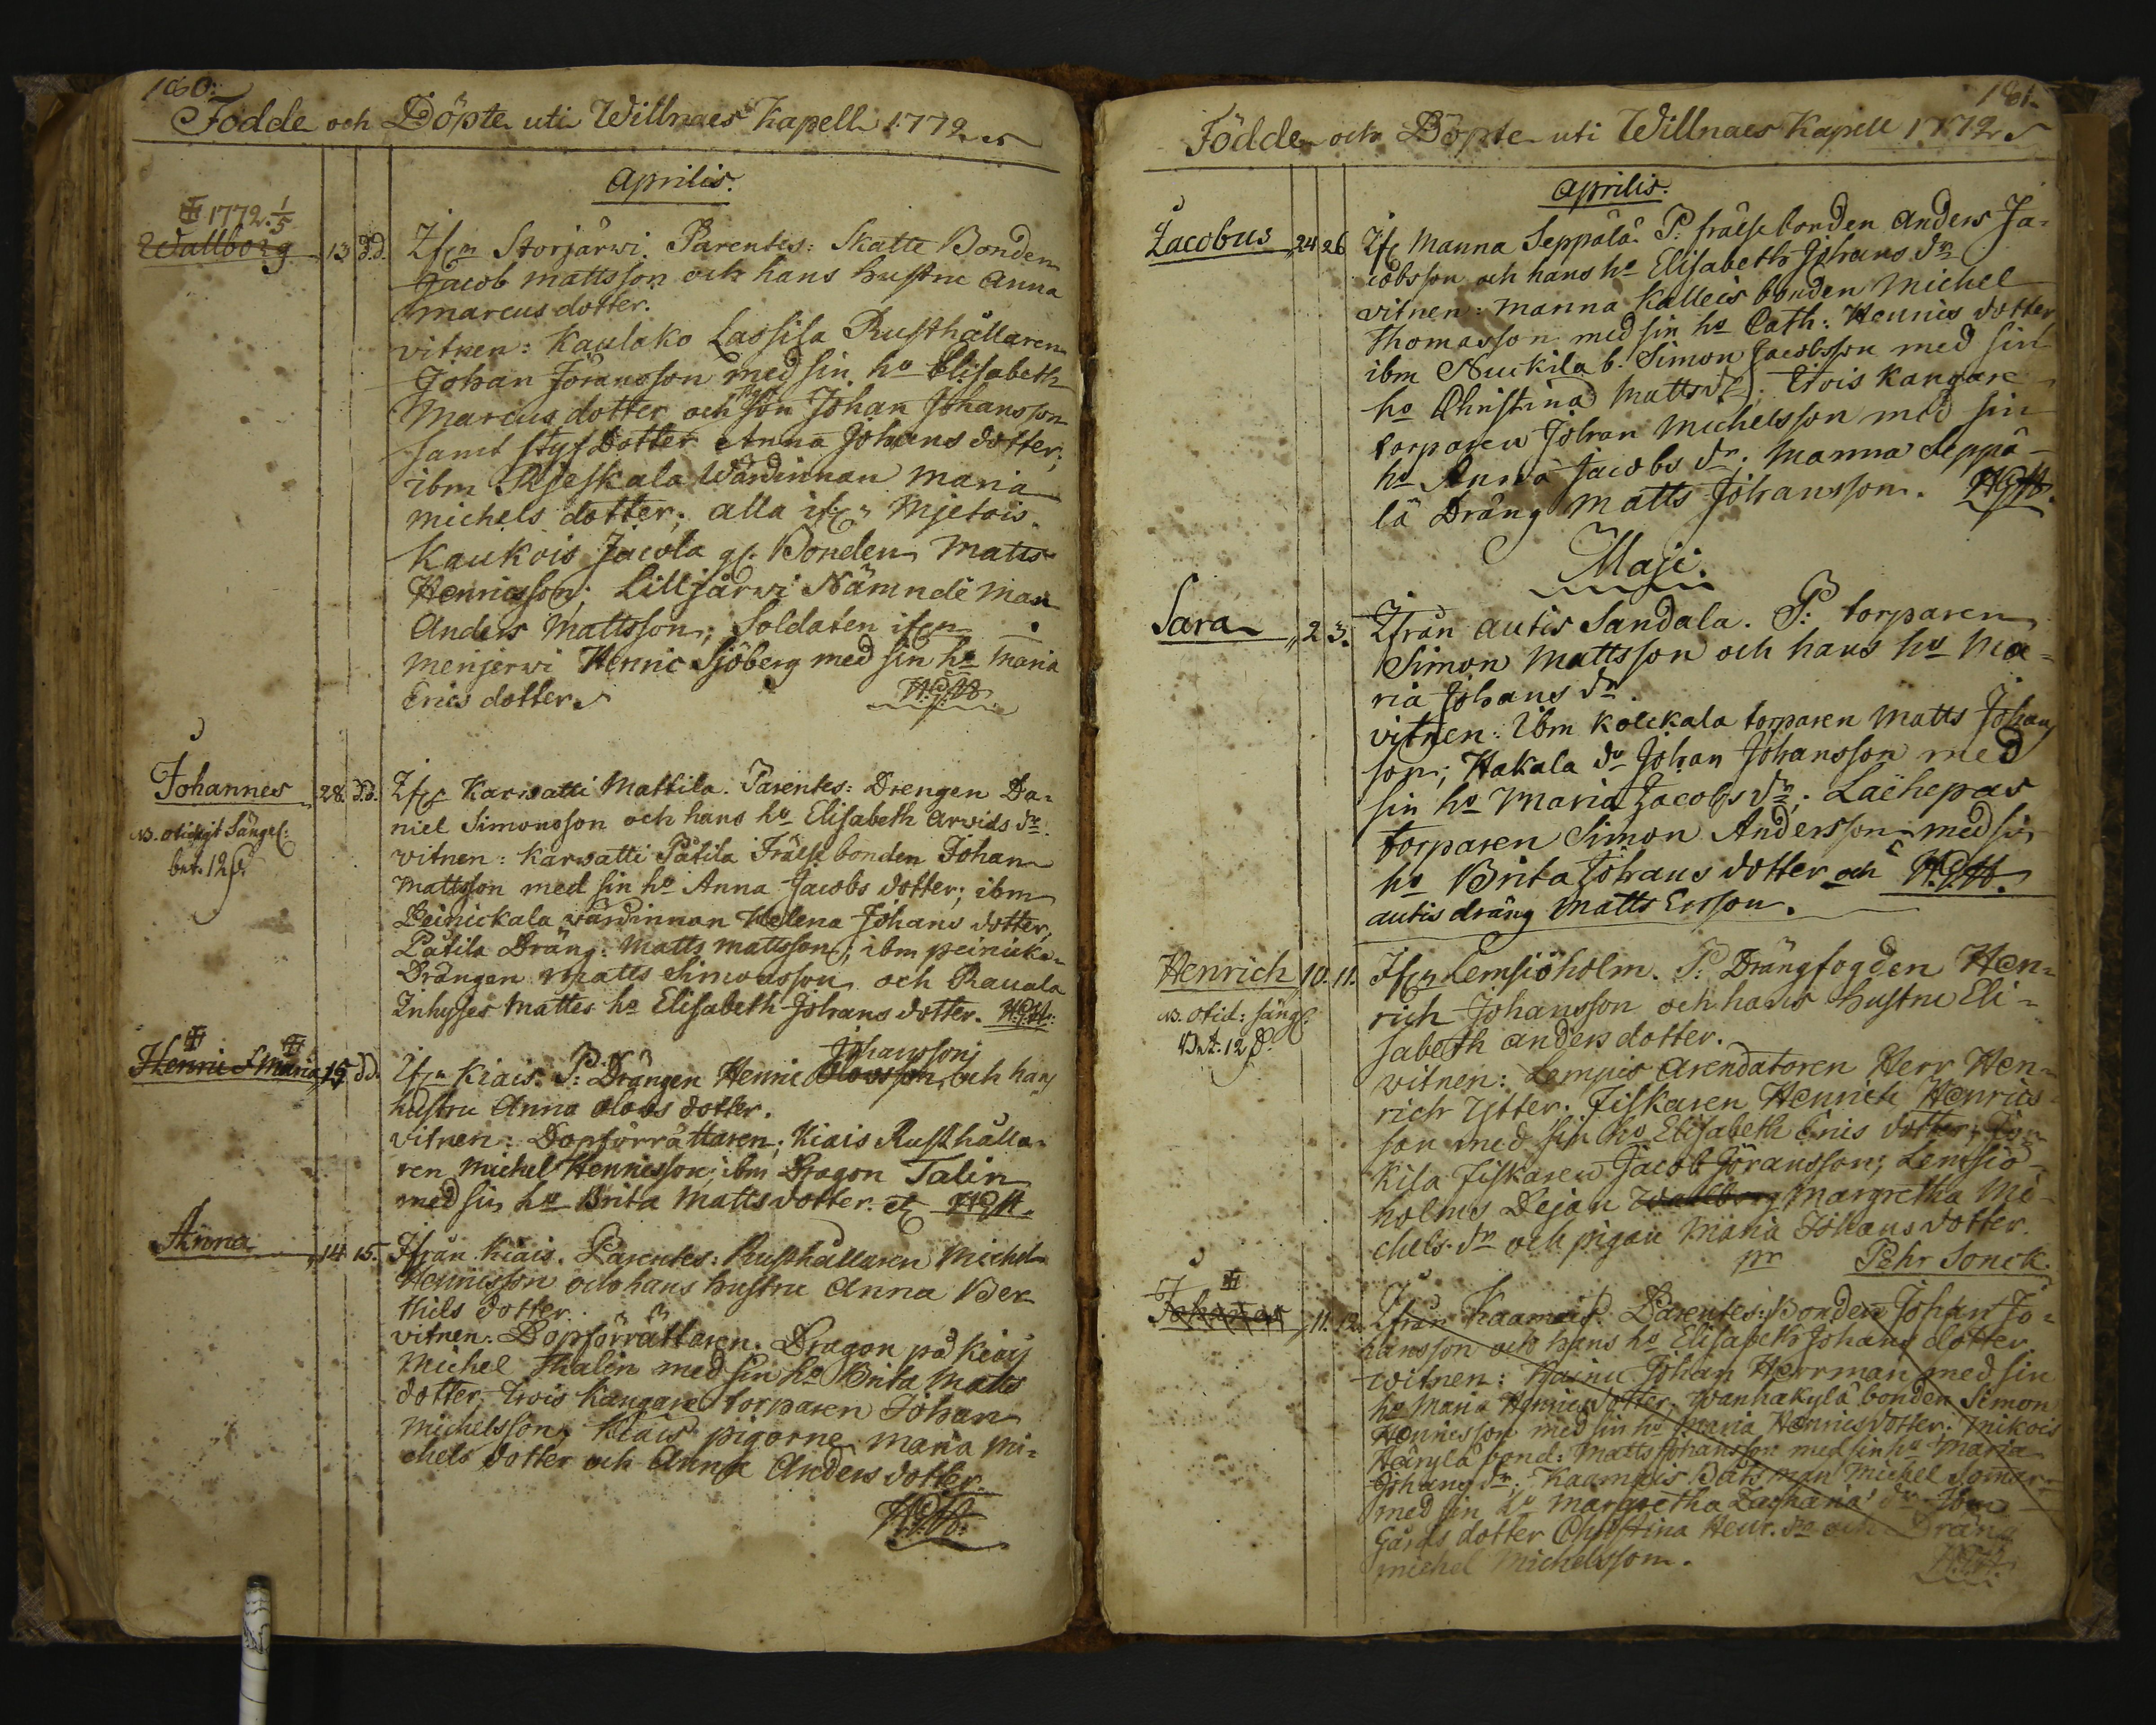 180.
Födde och Döpte uti Willnaes Kapell 1772
Aprilis.
1772. 1/5
Wallborg 13 d.d. Ifrn Storjärwi. Parentes: Skatte Bonden
Jacob Mattsson och hans hustru Anna
Marcus dotter.
vitnen: Kaulako Lassila Rusthållaren
Johan Jöransson med sin ho Elisabeth
Marcus dotter och son Johan Johansson
samt styf Dotter Anna Johans dotter;
ibm Wärdinnan Maria
Michels dotter; alla Mjetois.
Kaukois Jacola Bonden Matts
Henricsson; Lilljärwi Nämnde man
Anders Mattsson; Soldaten
Menjerwi Henric Sjöberg med sin ho Maria
Erics dotter.
Johannes 28. d.d. Karwatti Mattila. Parentes: Drengen Da-
niel Simonsson och hans ho Elisabeth Arwids dr.
NB. otidigt Sängel:
bet. 12
vitnen: Karwatti Pätila Frälse bonden Johan
Mattsson med sin ho Anna Jacobs dotter; ibm
Peinickala wärdinnan Helena Johans dotter,
Pätila Dräng: Matts Mattsson; ibm peinicka-
Drängen Matts Simonsson och Rauala
Inhyses Mattes ho Elisabeth Johans dotter.
Henric & Maria 15 dd. Ifrn Kiais. P: Drängen Henric Olovsson Johansson och hans
hustru Anna Olovs dotter.
vitnen: Dopförrättaren; Kiais Rusthålla-
ren Michel Henricsson; ibm Dragon Talin
med sin ho Brita Matts dotter.
Anna 14 15. Ifrån Kiais. Parentes: Rusthållaren Michel
Henricsson och hans hustru Anna Ber-
thils dotter.
vitnen: Dopförrättaren. Dragon på Kiais
Michel Thalin med sin ho Brita Matts
dotter, Kangare torparen Johan
Michelsson; Kiais pigorne Maria Mi-
chels dotter och Anna Anders dotter.
181.
Födde och Döpte uti Willnaes Kapell 1772
Aprilis.
Jacobus 24 26 Manna Seppälä. P. frälse bonden Anders Ja-
cobsson och hans ho Elisabeth Johans dr
vitnen: Manna Kalleis bonden Michel
Thomasson med sin ho Cath: Henrics dotter
ibm Nuckila b. Simon Jacobsson med sin
ho Christina Matts dr; Kangare
torparen Johan Michelsson med sin
ho Anna Jacobs dr; Manna Seppä-
lä Dräng Matts Johansson.
Maji.
Sara 2 3. Ifrån Autis Sandala. P: torparen
Simon Mattsson och hans ho Ma-
ria Johans dr.
vitnen: Ibm Kolckala torparen Matts Johans
son; Hakala do Johan Johansson med
sin ho Maria Jacobs dr; Laehepas
torparen Simon Andersson med sin
ho Brita Johans dotter och
autis dräng Matts Ersson.
Henrich 10. 11. Ifrn Lemsiöholm. P: Drängfogden Hen-
rich Johansson och hans hustru Eli-
sabeth anders dotter.
NB. otid: säng:
Bet: 12
vitnen: Lempis Arendatoren Herr Hen-
rich Ytter. Fiskaren Henrich Henrics-
son med sin ho Elisabeth Erics dotter;
kila Fiskaren Jacob Jöransson; Lemsiö-
holms Dejan Wallborg Margretha Mi-
chels dr och pigan Maria Johans dotter.
pr Pehr Sonck.
Johannes 11. 12. Ifrån Kaamais. Parentes: Bonden Johan Jo-
hansson och hans ho Elisabeth Johans dotter.
witnen: Johan Herrman med sin
ho Maria Henrics dotter; Wanhakylä bonden Simon
Henricsson med sin ho Maria Henrics dotter; Mikois
bond: Matts Johansson med sin ho Maria
Johans dr; Kaamais Båtsman Michel
med sin ho Margretha Zacharia dr. Ibm
Gårds dotter Christina Henr. dr och Dräng
Michel Michelsson.